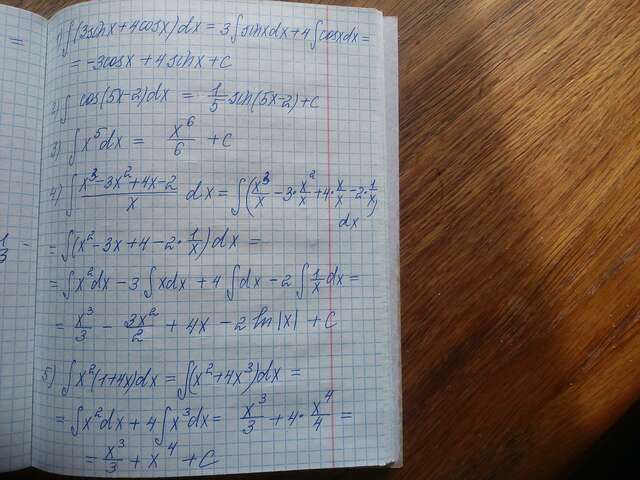 1) ∫(3sinx+4cosx)dx = 3∫sinxdx+4∫cosxdx=
= -3cosx + 4sinx + C
2) ∫ cos(5x-2)dx = 1/5 sin(5x-2)+C
3) ∫ x^5 dx = x^6/6 + C
4) ∫ (x^3-3x^2+4x-2)/x dx = ∫(x^3/x - 3·x^2/x + 4·x/x - 2·1/x)
dx
= ∫(x^2-3x+4-2·1/x)dx =
= ∫x^2dx - 3∫xdx + 4∫dx - 2∫1/x dx =
= x^3/3 - 3x^2/2 + 4x - 2 ln|x| + C
5) ∫x^2(1+4x)dx = ∫(x^2+4x^3)dx =
= ∫x^2dx + 4∫x^3dx = x^3/3 + 4·x^4/4 =
= x^3/3 + x^4 + C
=
1/3 -